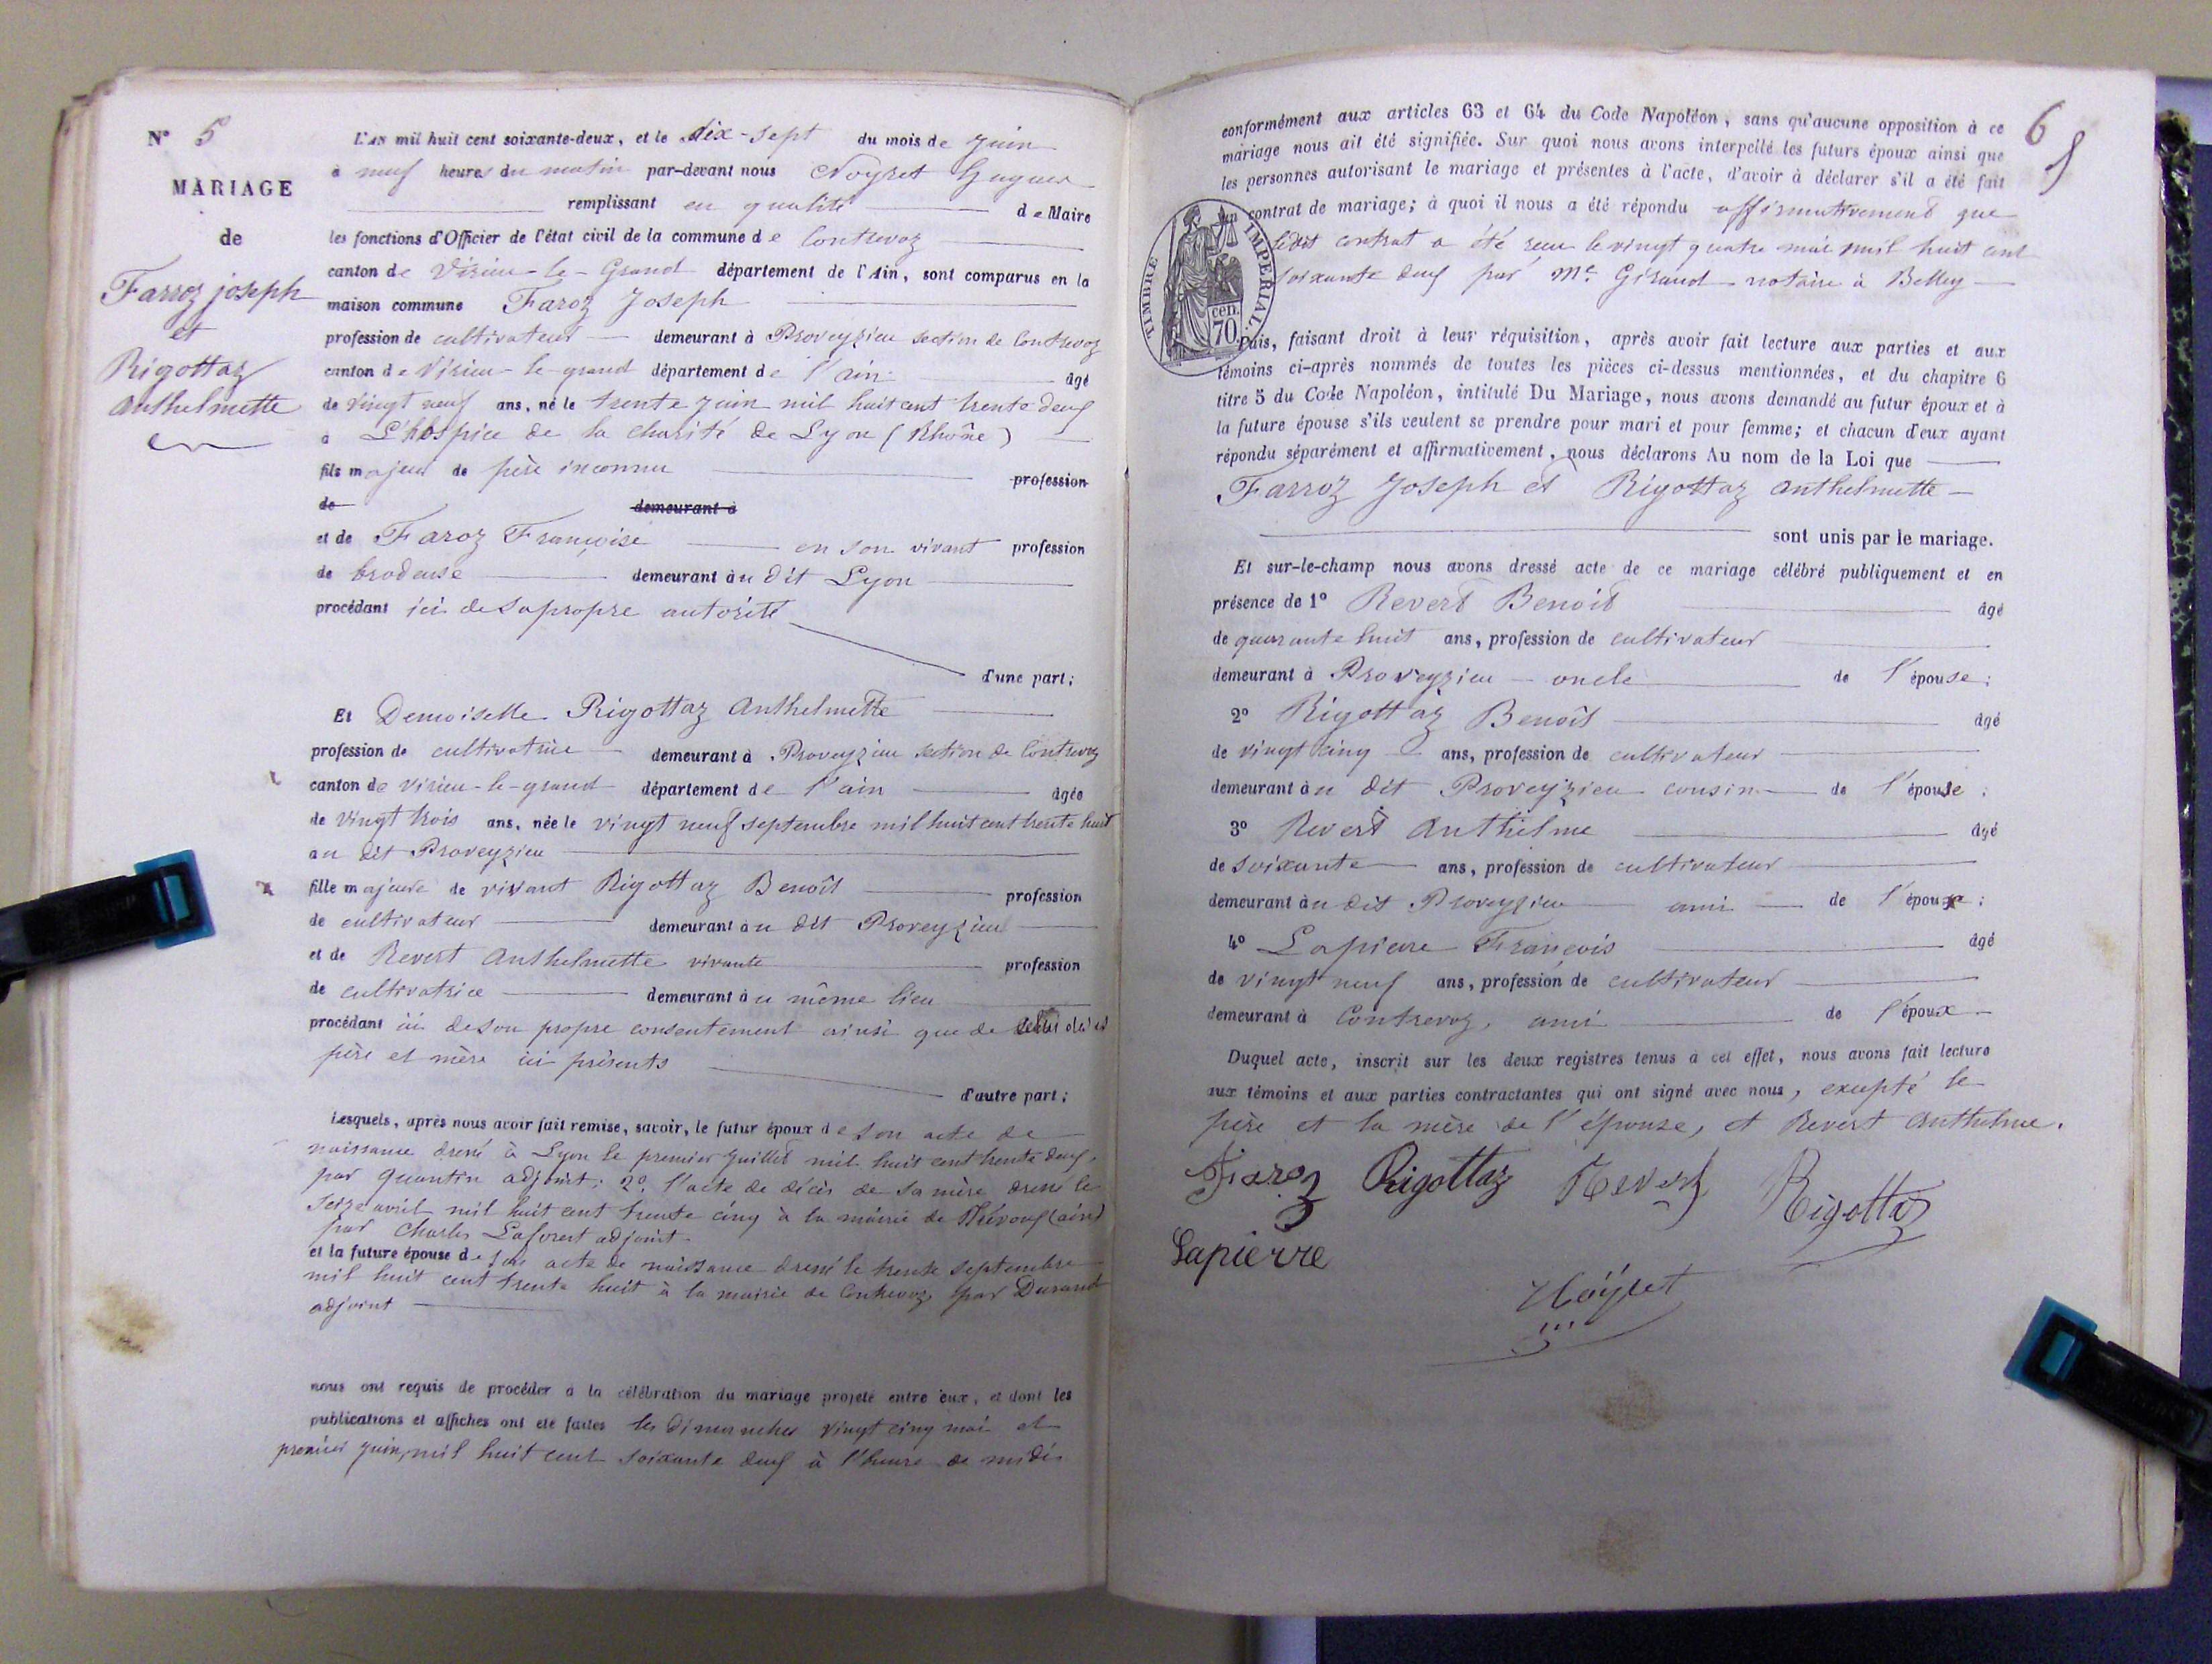 N° 5
MARIAGE
de
Farroz joseph
et
Rigottaz
Anthelmette
L'AN mil huit cent soixante-deux, et le dix-sept du mois de Juin
à neuf heures du matin par-devant nous Noyret
remplissant en qualité de Maire
les fonctions d'Officier de l'état civil de la commune de Contrevoz
canton de Virieu-le-Grand département de l'Ain, sont comparus en la
maison commune Faroz Joseph
profession de cultivateur demeurant à Proveyzieu section de Contrevoz
canton de Virieu-le-grand département de l'ain âgé
de vingt neuf ans, né le trente juin mil huit cent trente deux
à L'hospice de la charité de Lyon (Rhône)
fils majeur de père inconnu profession
de demeurant à
et de Faroz Françoise en son vivant profession
de brodeuse demeurant au dit Lyon
procédant ici de sa propre autorité
d'une part;
Et Demoiselle Rigottaz Anthelmette
profession de cultivatrice demeurant à Proveyzieu section de Contrevoz
canton de Virieu-le-grand département de l'ain âgée
de vingt trois ans, née le vingt neuf septembre mil huit cent trente huit
au dit Proveyzieu
fille majeure de vivant Rigottaz Benoît profession
de cultivateur demeurant au dit Proveyzieu
et de Revert Anthelmette vivante profession
de cultivatrice demeurant au même lieu
procédant ici de son propre consentement ainsi que de celui de ses
père et mère ici présents
d'autre part;
Lesquels, après nous avoir fait remise, savoir, le futur époux de son acte de
naissance dressé à Lyon le premier Juillet mil huit cent trente deux,
par quantin adjoint; 2° l'acte de décès de sa mère dressé le
seize avril mil huit cent trente cinq à la mairie de Thévoux (ain)
par Charles Laforest adjoint
et la future épouse de son acte de naissance dressé le trente septembre
mil huit cent trente huit à la mairie de Contrevoz par Durand
adjoint
nous ont requis de procéder à la célébration du mariage projeté entre eux, et dont les
publications et affiches ont été faites les dimanches vingt cinq mai et
premier juin, mil huit cent soixante deux à l'heure de midi
6
conformément aux articles 63 et 64 du Code Napoléon, sans qu'aucune opposition à ce
mariage nous ait été signifiée. Sur quoi nous avons interpellé les futurs époux ainsi que
les personnes autorisant le mariage et présentes à l'acte, d'avoir à déclarer s'il a été fait
un contrat de mariage; à quoi il nous a été répondu affirmativement que
ledit contrat a été reçu le vingt quatre mai mil huit cent
soixante deux par Me Giraud notaire à Belley
TIMBRE IMPÉRIAL.
cen. 70.
Puis, faisant droit à leur réquisition, après avoir fait lecture aux parties et aux
témoins ci-après nommés de toutes les pièces ci-dessus mentionnées, et du chapitre 6
titre 5 du Code Napoléon, intitulé Du Mariage, nous avons demandé au futur époux et à
la future épouse s'ils veulent se prendre pour mari et pour femme; et chacun d'eux ayant
répondu séparément et affirmativement, nous déclarons Au nom de la Loi que
Farroz Joseph et Rigottaz Anthelmette
sont unis par le mariage.
Et sur-le-champ nous avons dressé acte de ce mariage célébré publiquement et en
présence de 1° Revert Benoit âgé
de quarante huit ans, profession de cultivateur
demeurant à Proveyzieu oncle de l'épouse;
2° Rigottaz Benoît âgé
de vingt cinq ans, profession de cultivateur
demeurant au dit Proveyzieu cousin de l'épouse;
3° Revert Anthelme âgé
de soixante ans, profession de cultivateur
demeurant au dit Proveyzieu ami de l'époux;
4° Lapierre François âgé
de vingt neuf ans, profession de cultivateur
demeurant à Contrevoz, ami de l'époux
Duquel acte, inscrit sur les deux registres tenus à cet effet, nous avons fait lecture
aux témoins et aux parties contractantes qui ont signé avec nous, excepté le
père et la mère de l'épouse, et Revert Anthelme.
Faroz Rigottaz Revert Rigottaz
Lapierre
Noyret